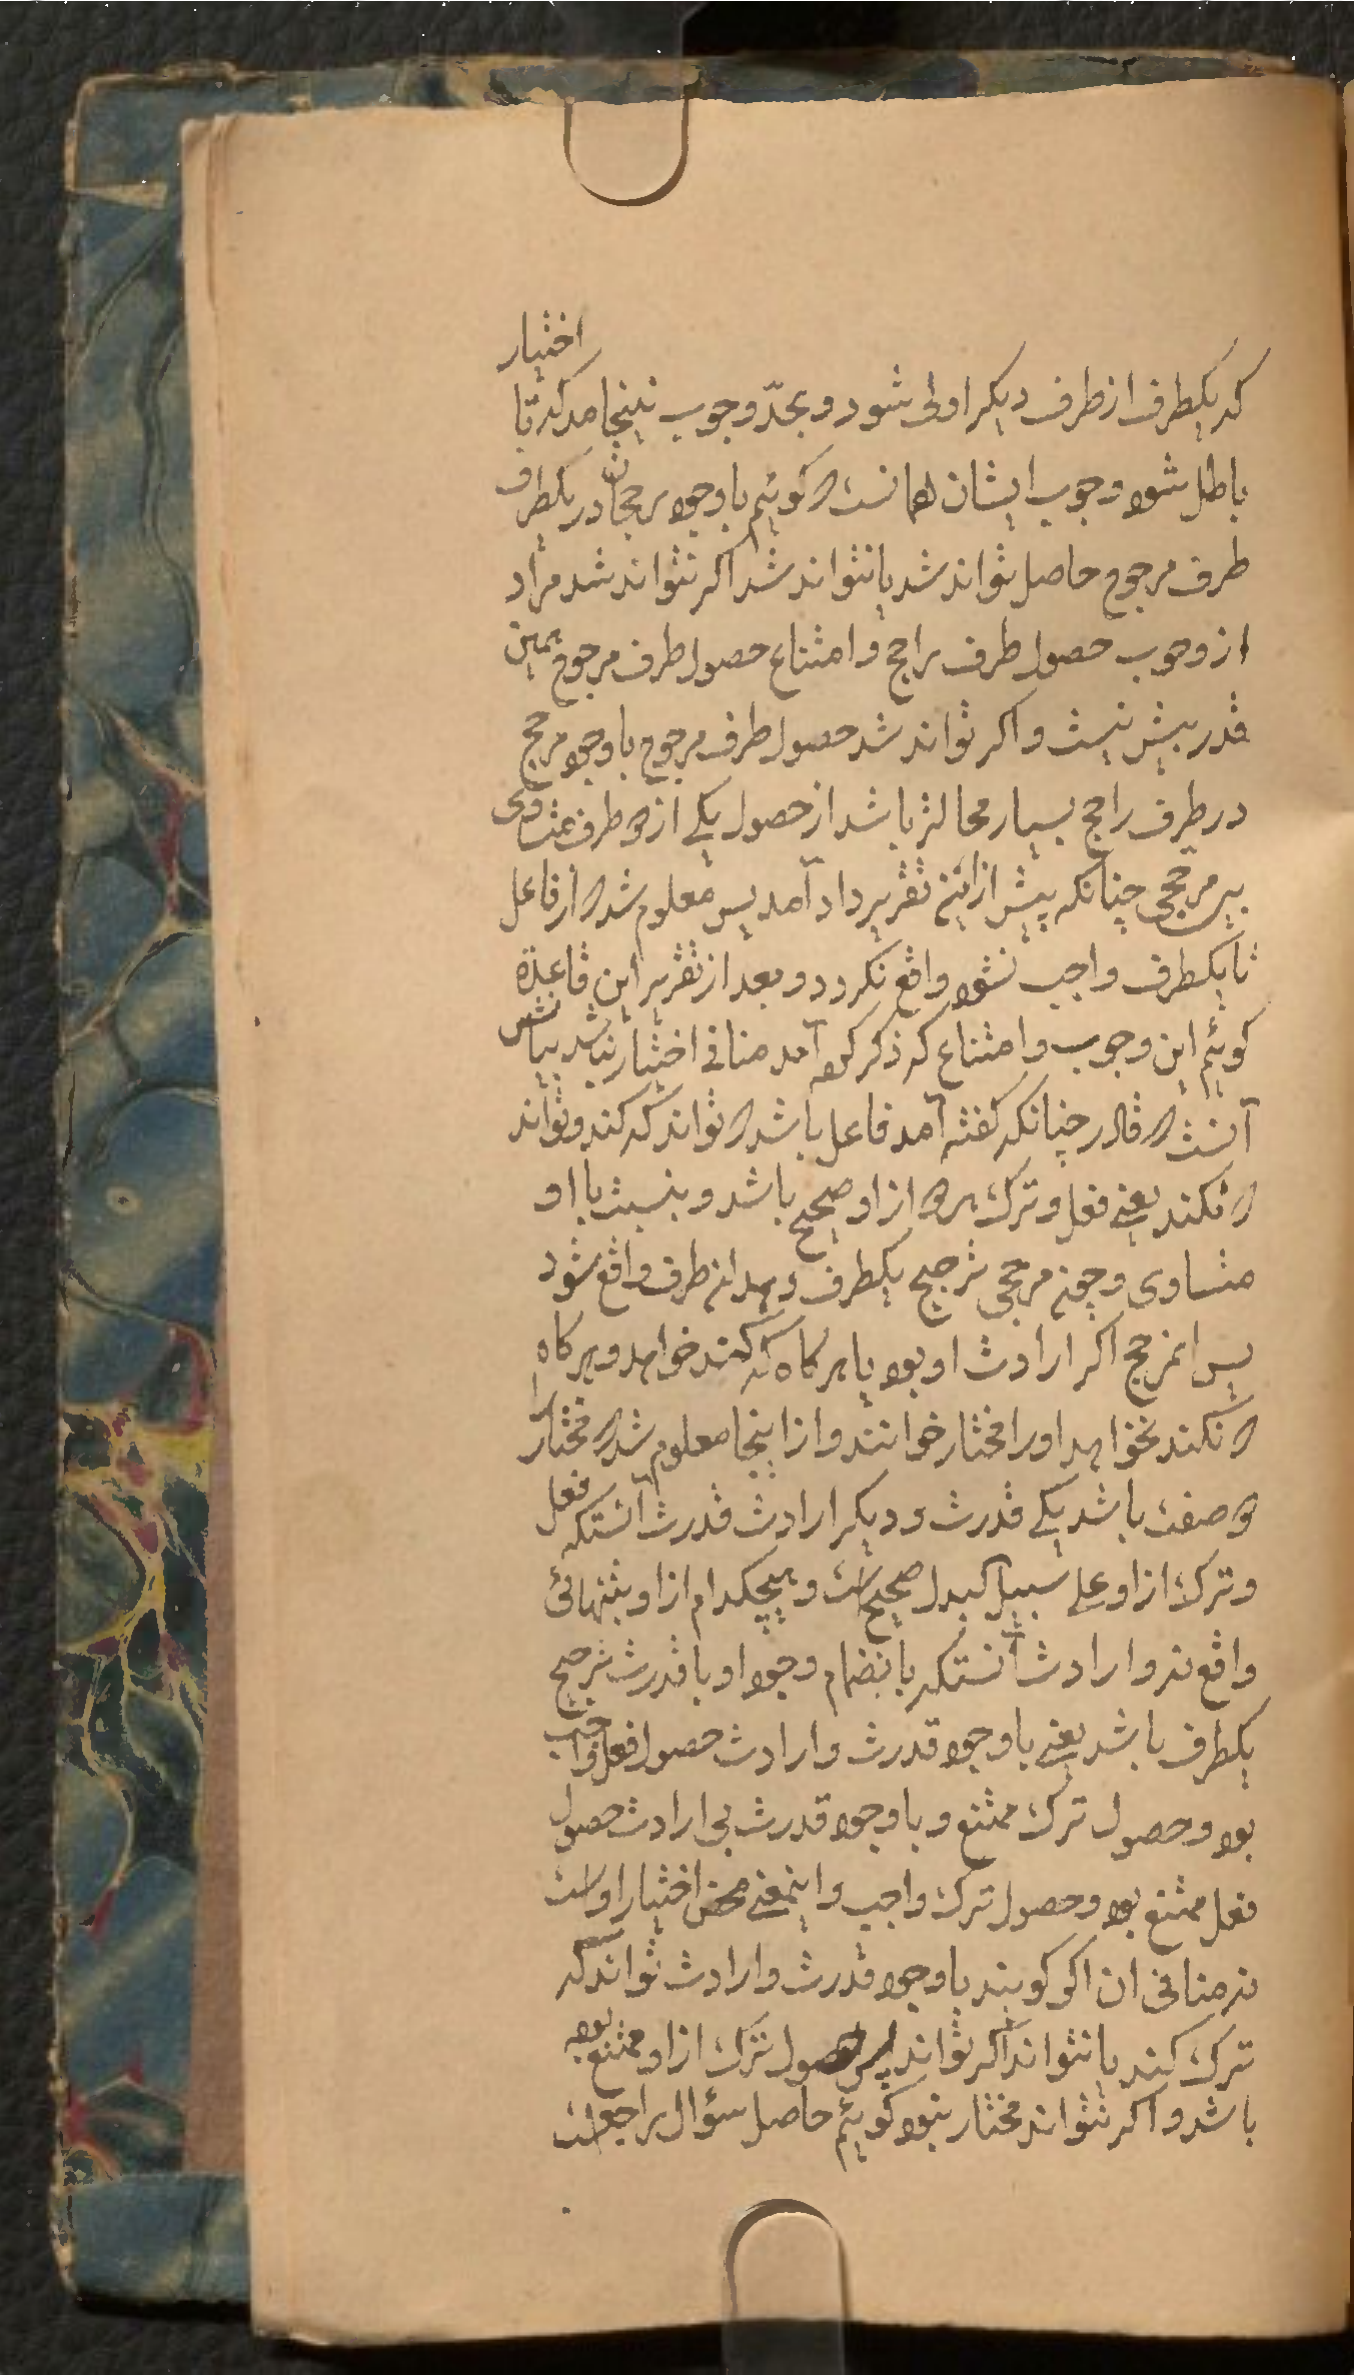 اختیار
که یکطرف از طرف دیکر اولی شود و بحدّ وجوب نینجامد که تا
باطل شود وجوب ایشان همانست که کوئیم با وجود رجحان در یکطرف
طرف مرجوح حاصل تواند شد یا نتواند شد اکر نتواند شد مراد
از وجوب حصول طرف راجح و امتناع حصول طرف مرجوح همین
قدر بیش نیست و اکر تواند شد حصول طرف مرجوح با وجود مرجح
در طرف راجح بسیار محالتر باشد از حصول یکی از دو طرف متساوی
بی مرجحی چنانکه پیش ازین تقریر داد آمد پس معلوم شد که از فاعل
تا یکطرف واجب نشود واقع نکردد و بعد از تقریر این قاعده
کوئیم این وجوب و امتناع که ذکر کرده آمد منافی اختیار نباشد بیانش
آنست که قادر چنانکه کفته آمد فاعل باشد که تواند که کند و تواند
که نکند یعنی فعل و ترک هر دو از او صحیح باشد و بنسبت با او
متساوی و چون مرجحی ترجیح یکطرف دهد آن طرف واقع شود
پس آنمرجح اکر ارادت او بود یا هرکاه که کند خواهد و هرکاه
که نکند نخواهد او را مختار خوانند و از اینجا معلوم شد که مختار را
دو صفت باشد یکی قدرت و دیکر ارادت قدرت آنستکه فعل
و ترک از او علی سبیل البدل صحیح است و هیچکدام از او بتنهائی
واقع نه و ارادت آنستکه بانضمام وجود او با قدرت ترجیح
یکطرف باشد یعنی با وجود قدرت و ارادت حصول فعل واجب
بود و حصول ترک ممتنع و با وجود قدرت بی ارادت حصول
فعل ممتنع بود و حصول ترک واجب و اینمعنی محض اختیار اوست
نه منافی ان اکر کویند با وجود قدرت و ارادت تواند که
ترک کند یا نتواند اکر تواند پس حصول ترک از او ممتنع نبوده
باشد و اکر نتواند مختار نبود کوئیم حاصل سؤال راجعست